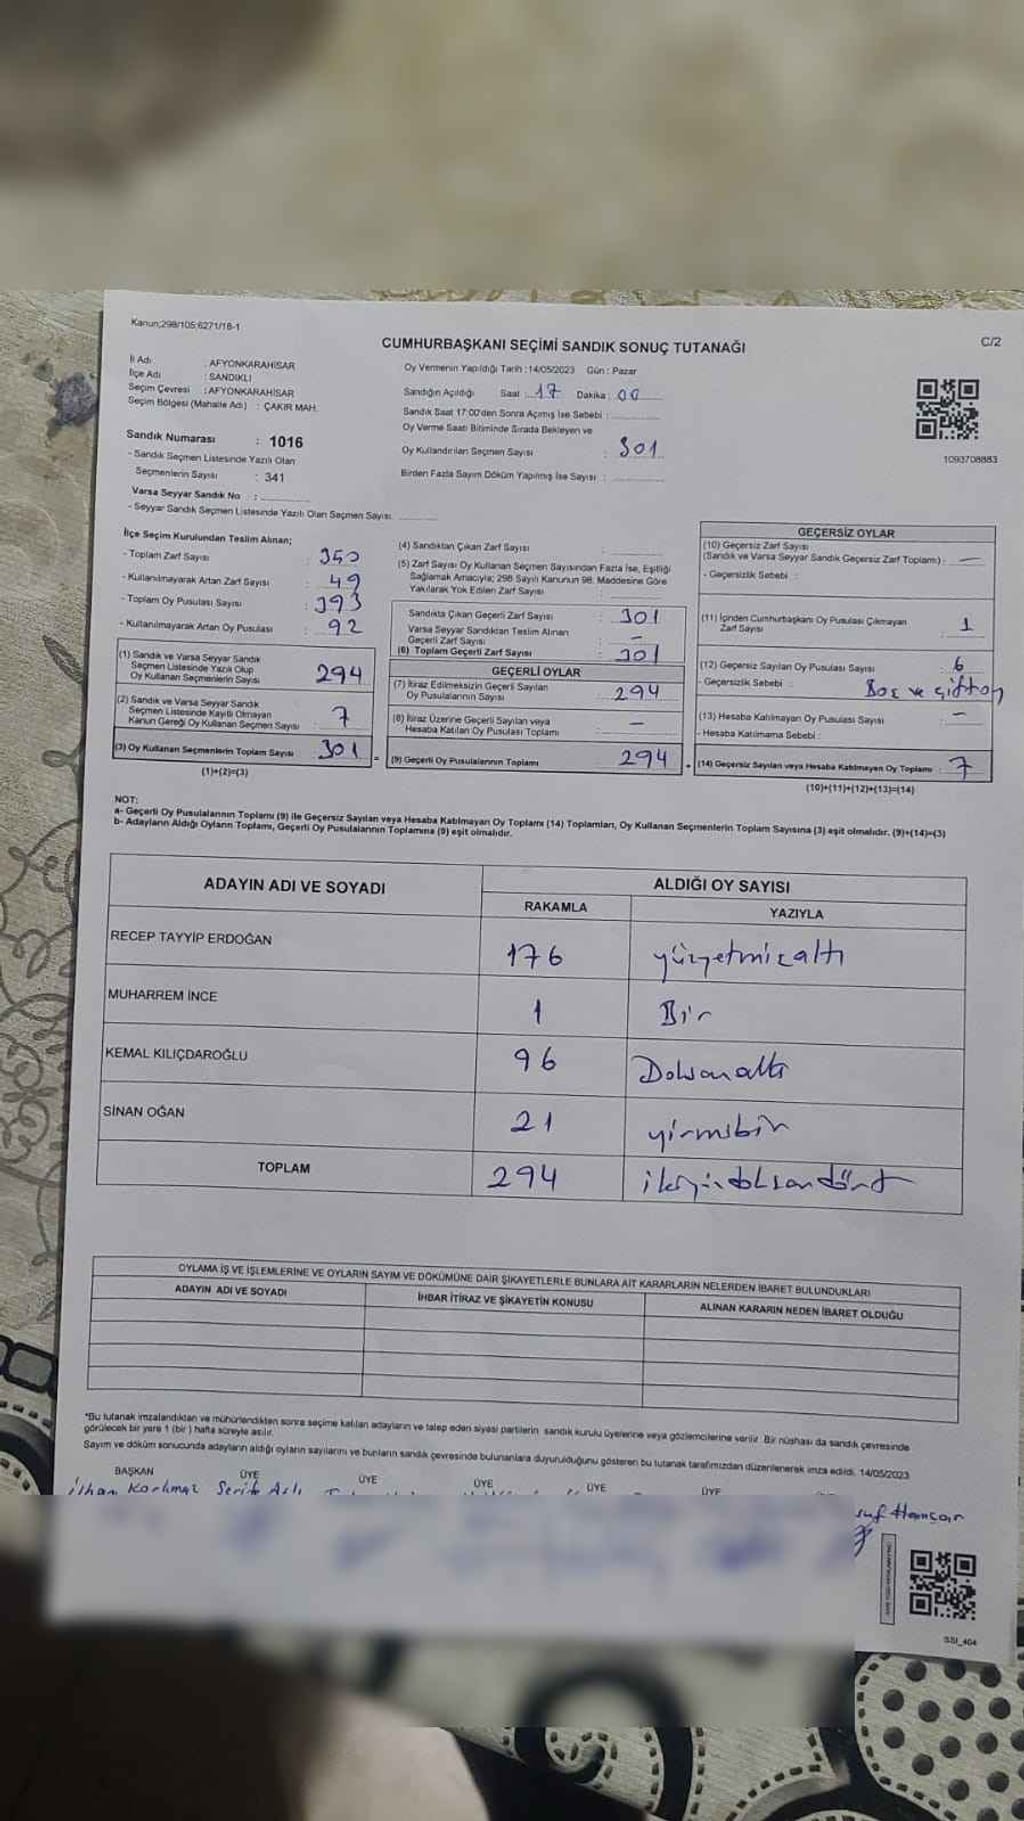 Kanun;298/105;6271/18-1
C/2
CUMHURBAŞKANI SEÇİMİ SANDIK SONUÇ TUTANAĞI
İl Adı : AFYONKARAHİSAR
İlçe Adı : SANDIKLI
Seçim Çevresi : AFYONKARAHİSAR
Seçim Bölgesi (Mahalle Adı) : ÇAKIR MAH.
Sandık Numarası : 1016
- Sandık Seçmen Listesinde Yazılı Olan
Seçmenlerin Sayısı : 341
Varsa Seyyar Sandık No : ............
- Seyyar Sandık Seçmen Listesinde Yazılı Olan Seçmen Sayısı ............
Oy Vermenin Yapıldığı Tarih :14/05/2023 Gün : Pazar
Sandığın Açıldığı Saat : 17 Dakika : 00
Sandık Saat 17:00'den Sonra Açımış İse Sebebi : ............
Oy Verme Saati Bitiminde Sırada Bekleyen ve
Oy Kullandırılan Seçmen Sayısı : 301
Birden Fazla Sayım Döküm Yapılmış İse Sayısı : ............
1093708883
İlçe Seçim Kurulundan Teslim Alınan;
- Toplam Zarf Sayısı : 350
- Kullanılmayarak Artan Zarf Sayısı : 49
- Toplam Oy Pusulası Sayısı : 393
- Kullanılmayarak Artan Oy Pusulası : 92
(1) Sandık ve Varsa Seyyar Sandık
Seçmen Listesinde Yazılı Olup
Oy Kullanan Seçmenlerin Sayısı 294
(2) Sandık ve Varsa Seyyar Sandık
Seçmen Listesinde Kayıtlı Olmayan
Kanun Gereği Oy Kullanan Seçmen Sayısı 7
(3) Oy Kullanan Seçmenlerin Toplam Sayısı 301
(1)+(2)=(3)
(4) Sandıktan Çıkan Zarf Sayısı : ............
(5) Zarf Sayısı Oy Kullanan Seçmen Sayısından Fazla İse, Eşitliği
Sağlamak Amacıyla; 298 Sayılı Kanunun 98. Maddesine Göre
Yakılarak Yok Edilen Zarf Sayısı : ............
Sandıkta Çıkan Geçerli Zarf Sayısı : 301
Varsa Seyyar Sandıktan Teslim Alınan
Geçerli Zarf Sayısı : -
(6) Toplam Geçerli Zarf Sayısı : 301
GEÇERLİ OYLAR
(7) İtiraz Edilmeksizin Geçerli Sayılan
Oy Pusulasının Sayısı : 294
(8) İtiraz Üzerine Geçerli Sayılan veya
Hesaba Katılan Oy Pusulası Toplamı : -
(9) Geçerli Oy Pusulalarının Toplamı 294
GEÇERSİZ OYLAR
(10) Geçersiz Zarf Sayısı
(Sandık ve Varsa Seyyar Sandık Geçersiz Zarf Toplamı) : -
- Geçersizlik Sebebi :
(11) İçinden Cumhurbaşkanı Oy Pusulası Çıkmayan
Zarf Sayısı : 1
(12) Geçersiz Sayılan Oy Pusulası Sayısı : 6
- Geçersizlik Sebebi : Boş ve çiftoy
(13) Hesaba Katılmayan Oy Pusulası Sayısı : -
- Hesaba Katılmama Sebebi :
(14) Geçersiz Sayılan veya Hesaba Katılmayan Oy Toplamı : 7
(10)+(11)+(12)+(13)=(14)
NOT:
a- Geçerli Oy Pusulalarının Toplamı (9) ile Geçersiz Sayılan veya Hesaba Katılmayan Oy Toplamı (14) Toplamları, Oy Kullanan Seçmenlerin Toplam Sayısına (3) eşit olmalıdır. (9)+(14)=(3)
b- Adayların Aldığı Oyların Toplamı, Geçerli Oy Pusulalarının Toplamına (9) eşit olmalıdır.
ADAYIN ADI VE SOYADI ALDIĞI OY SAYISI
RAKAMLA YAZIYLA
RECEP TAYYİP ERDOĞAN 176 yüzyetmişaltı
MUHARREM İNCE 1 Bir
KEMAL KILIÇDAROĞLU 96 Doksanaltı
SİNAN OĞAN 21 yirmibir
TOPLAM 294 ikiyüzdoksandört
OYLAMA İŞ VE İŞLEMLERİNE VE OYLARIN SAYIM VE DÖKÜMÜNE DAİR ŞİKAYETLERLE BUNLARA AİT KARARLARIN NELERDEN İBARET BULUNDUKLARI
ADAYIN ADI VE SOYADI İHBAR İTİRAZ VE ŞİKAYETİN KONUSU ALINAN KARARIN NEDEN İBARET OLDUĞU
*Bu tutanak imzalandıktan ve mühürlendikten sonra seçime katılan adayların ve talep eden siyasi partilerin sandık kurulu üyelerine veya gözlemcilerine verilir. Bir nüshası da sandık çevresinde
görülecek bir yere 1 (bir ) hafta süreyle asılır.
Sayım ve döküm sonucunda adayların aldığı oyların sayılarını ve bunların sandık çevresinde bulunanlara duyurulduğunu gösteren bu tutanak tarafımızdan düzenlenerek imza edildi. 14/05/2023
BAŞKAN ÜYE ÜYE ÜYE ÜYE ÜYE
İlhan Korkmaz
SSI_404